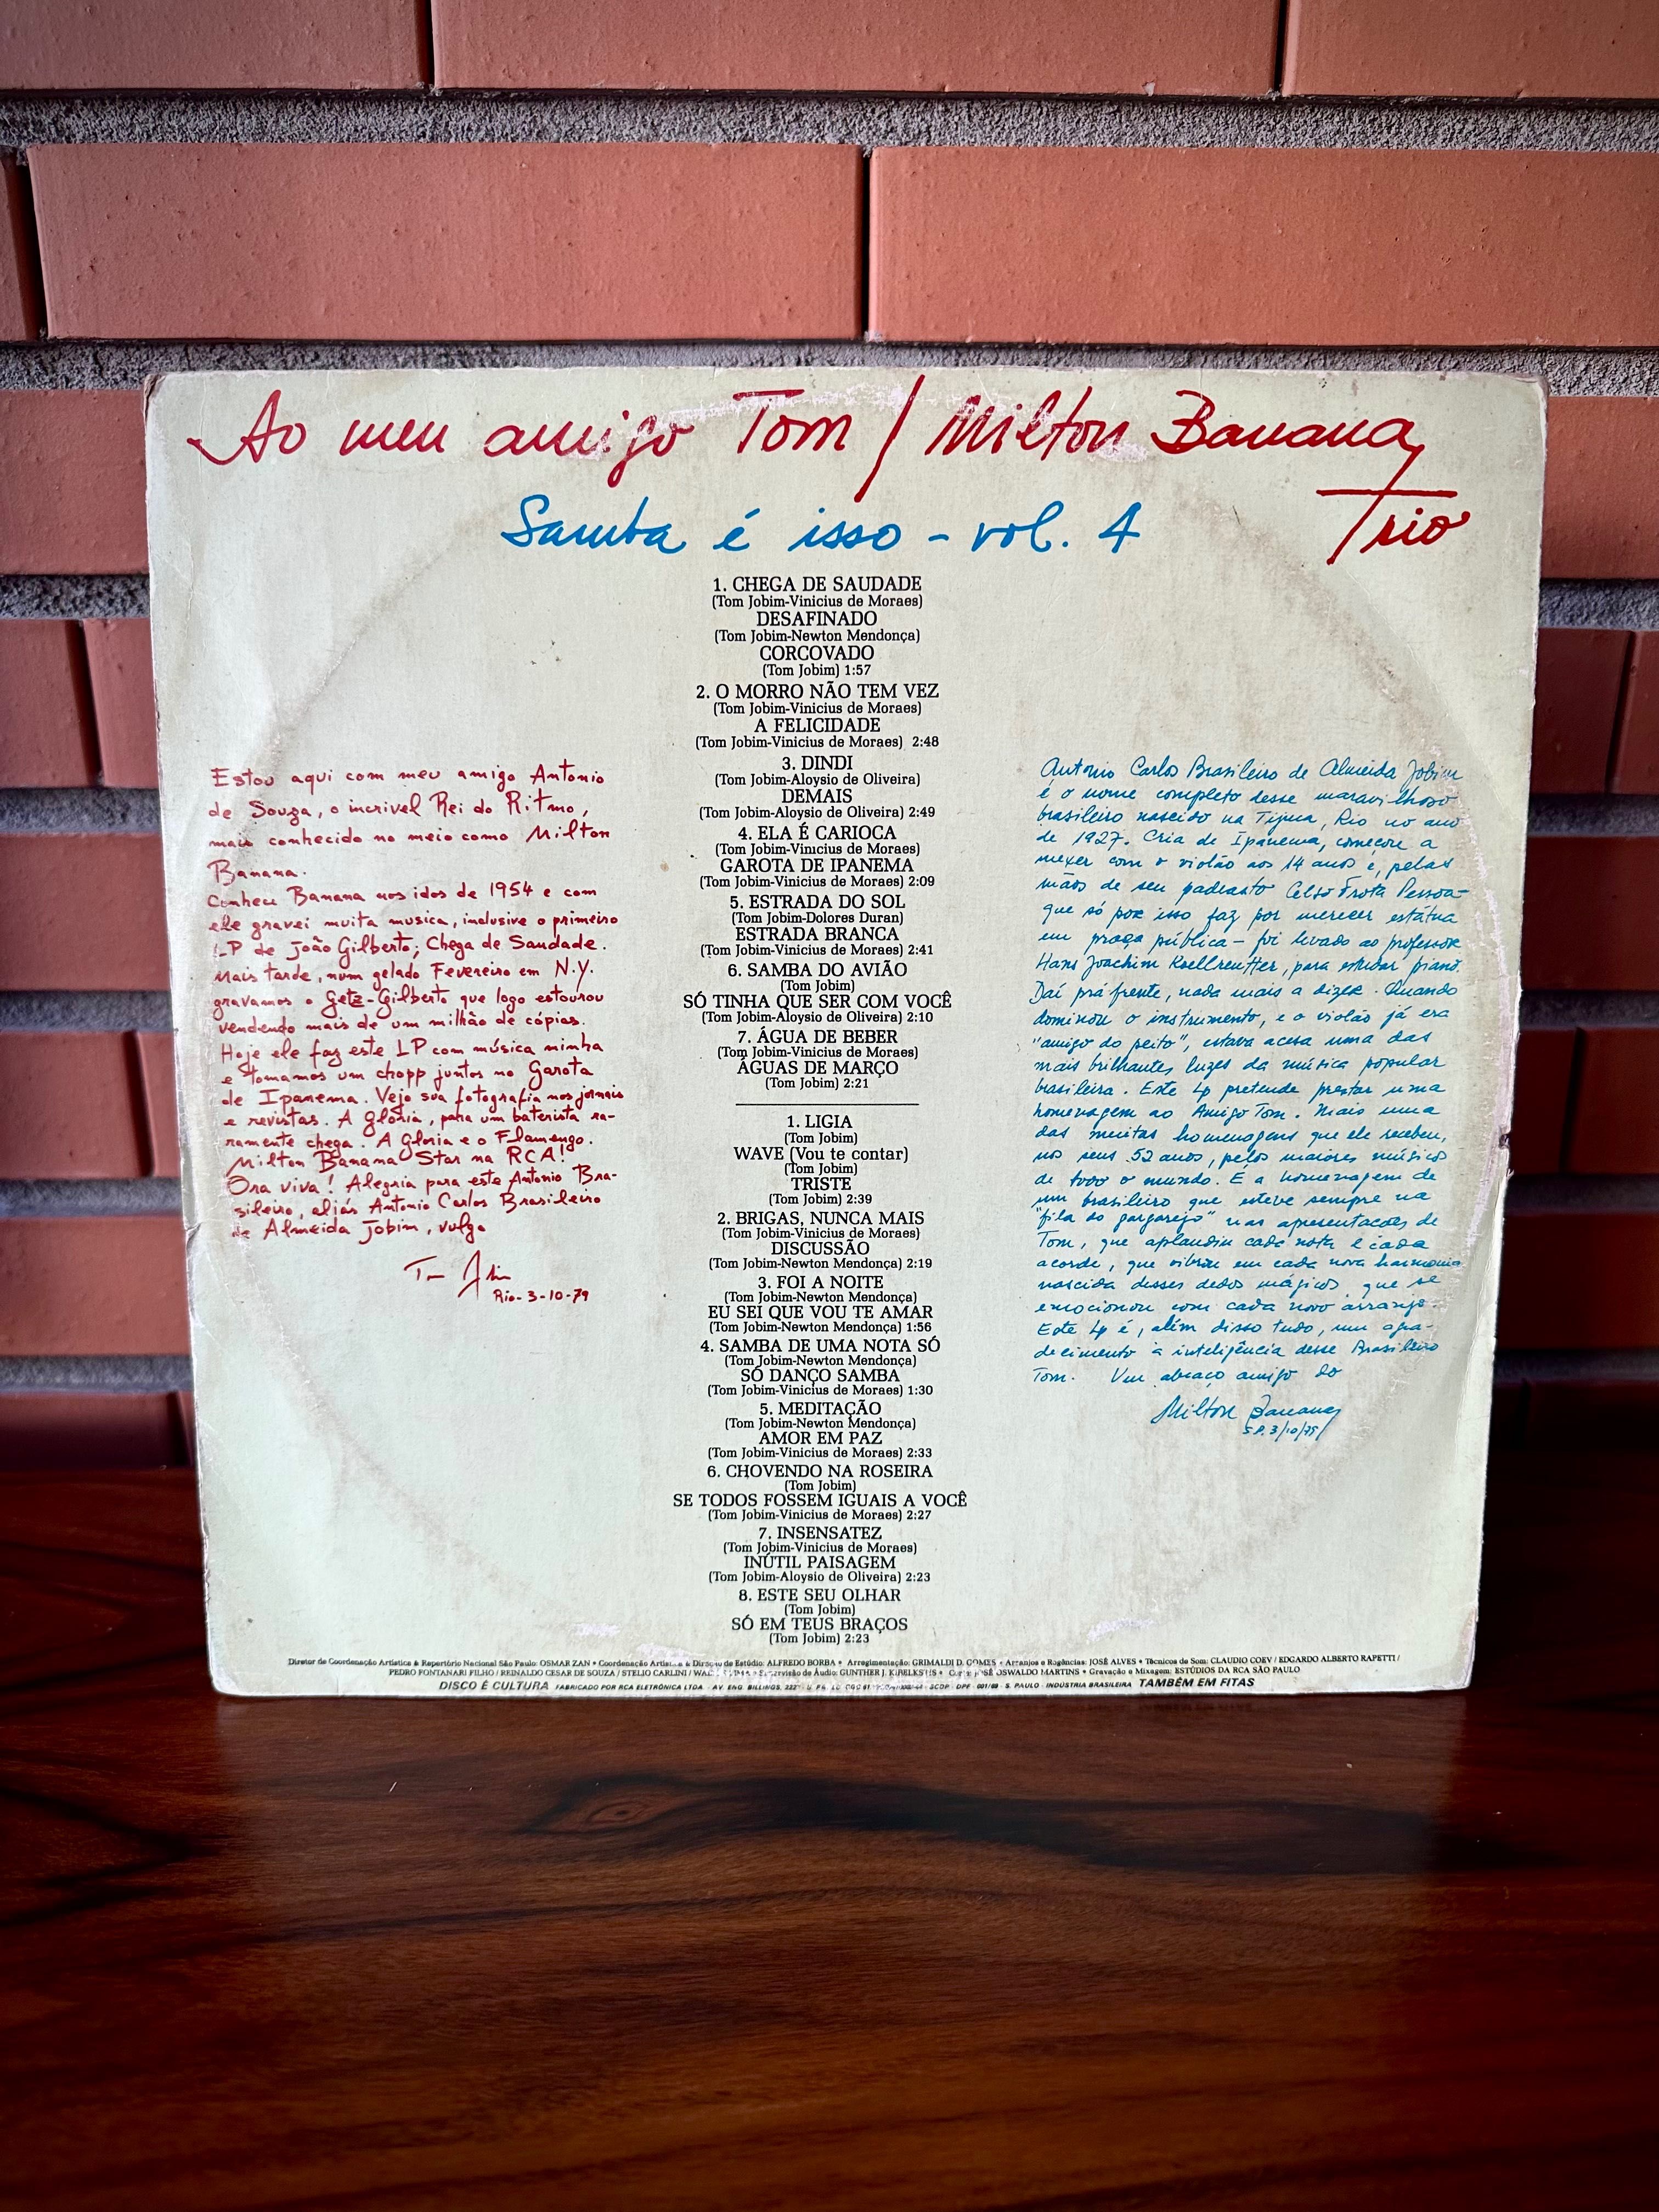 Ao meu amigo Tom / Milton Banana
Trio
Samba é isso - vol. 4
1. CHEGA DE SAUDADE
(Tom Jobim-Vinicius de Moraes)
DESAFINADO
(Tom Jobim-Newton Mendonça)
CORCOVADO
(Tom Jobim) 1:57
2. O MORRO NÃO TEM VEZ
(Tom Jobim-Vinicius de Moraes)
A FELICIDADE
(Tom Jobim-Vinicius de Moraes) 2:48
3. DINDI
(Tom Jobim-Aloysio de Oliveira)
DEMAIS
(Tom Jobim-Aloysio de Oliveira) 2:49
4. ELA É CARIOCA
(Tom Jobim-Vinicius de Moraes)
GAROTA DE IPANEMA
(Tom Jobim-Vinicius de Moraes) 2:09
5. ESTRADA DO SOL
(Tom Jobim-Dolores Duran)
ESTRADA BRANCA
(Tom Jobim-Vinicius de Moraes) 2:41
6. SAMBA DO AVIÃO
(Tom Jobim)
SÓ TINHA QUE SER COM VOCÊ
(Tom Jobim-Aloysio de Oliveira) 2:10
7. ÁGUA DE BEBER
(Tom Jobim-Vinicius de Moraes)
ÁGUAS DE MARÇO
(Tom Jobim) 2:21
1. LIGIA
(Tom Jobim)
WAVE (Vou te contar)
(Tom Jobim)
TRISTE
(Tom Jobim) 2:39
2. BRIGAS, NUNCA MAIS
(Tom Jobim-Vinicius de Moraes)
DISCUSSÃO
(Tom Jobim-Newton Mendonça) 2:19
3. FOI A NOITE
(Tom Jobim-Newton Mendonça)
EU SEI QUE VOU TE AMAR
(Tom Jobim-Newton Mendonça) 1:56
4. SAMBA DE UMA NOTA SÓ
(Tom Jobim-Newton Mendonça)
SÓ DANÇO SAMBA
(Tom Jobim-Vinicius de Moraes) 1:30
5. MEDITAÇÃO
(Tom Jobim-Newton Mendonça)
AMOR EM PAZ
(Tom Jobim-Vinicius de Moraes) 2:33
6. CHOVENDO NA ROSEIRA
(Tom Jobim)
SE TODOS FOSSEM IGUAIS A VOCÊ
(Tom Jobim-Vinicius de Moraes) 2:27
7. INSENSATEZ
(Tom Jobim-Vinicius de Moraes)
INÚTIL PAISAGEM
(Tom Jobim-Aloysio de Oliveira) 2:23
8. ESTE SEU OLHAR
(Tom Jobim)
SÓ EM TEUS BRAÇOS
(Tom Jobim) 2:23
Estou aqui com meu amigo Antonio
de Souza, o incrivel Rei do Ritmo,
mais conhecido no meio como Milton
Banana.
Conheci Banana nos idos de 1954 e com
ele gravei muita musica, inclusive o primeiro
LP de João Gilberto; Chega de Saudade.
Mais tarde, num gelado Fevereiro em N.Y.
gravamos o Getz-Gilberto que logo estourou
vendendo mais de um milhão de cópias.
Hoje ele faz este LP com música minha
e tomamos um chopp juntos no Garota
de Ipanema. Vejo sua fotografia nos jornais
e revistas. A glória, para um baterista ra-
ramente chega. A Gloria e o Flamengo.
Milton Banana Star na RCA!
Ora viva! Alegria para este Antonio Bra-
sileiro, aliás Antonio Carlos Brasileiro
de Almeida Jobim, vulgo
Tom Jobim
Rio-3-10-79
Antonio Carlos Brasileiro de Almeida Jobim
é o nome completo desse maravilhoso
brasileiro nascido na Tijuca, Rio no ano
de 1927. Cria de Ipanema, começou a
mexer com o violão aos 14 anos e, pelas
mãos de seu padrasto Celso Frota Pessoa -
que só por isso faz por merecer estátua
em praça pública - foi levado ao professor
Hans Joachim Koellreutter, para estudar piano.
Daí prá frente, nada mais a dizer. Quando
dominou o instrumento, e o violão já era
"amigo do peito", estava acesa uma das
mais brilhantes luzes da música popular
brasileira. Este Lp pretende prestar uma
homenagem ao Amigo Tom. Mais uma
das muitas homenagens que ele recebeu,
nos seus 52 anos, pelos maiores músicos
de todo o mundo. É a homenagem de
um brasileiro que esteve sempre na
"fila do gargarejo" nas apresentacões de
Tom, que aplaudiu cada nota e cada
acorde, que vibrou em cada nova harmonia
nascida desses dedos mágicos, que se
emocionou com cada novo arranjo.
Este Lp é, além disso tudo, um agra-
decimento à inteligência desse Brasileiro
Tom. Um abraço amigo do
Milton Banana
S.P. 3/10/79
Diretor de Coordenação Artística & Repertório Nacional São Paulo: OSMAR ZAN • Coordenação Artística & Direção de Estúdio: ALFREDO BORBA • Arregimentação: GRIMALDI D. GOMES • Arranjos e Regências: JOSÉ ALVES • Técnicos de Som: CLAUDIO COEV / EDGARDO ALBERTO RAPETTI /
PEDRO FONTANARI FILHO / REINALDO CESAR DE SOUZA / STELIO CARLINI / • Supervisão de Áudio: GUNTHER J. • JOSÉ OSWALDO MARTINS • Gravação e Mixagem: ESTÚDIOS DA RCA SÃO PAULO
DISCO É CULTURA FABRICADO POR RCA ELETRÔNICA LTDA. AV. ENG. BILLINGS, S. PAULO - INDÚSTRIA BRASILEIRA TAMBÉM EM FITAS